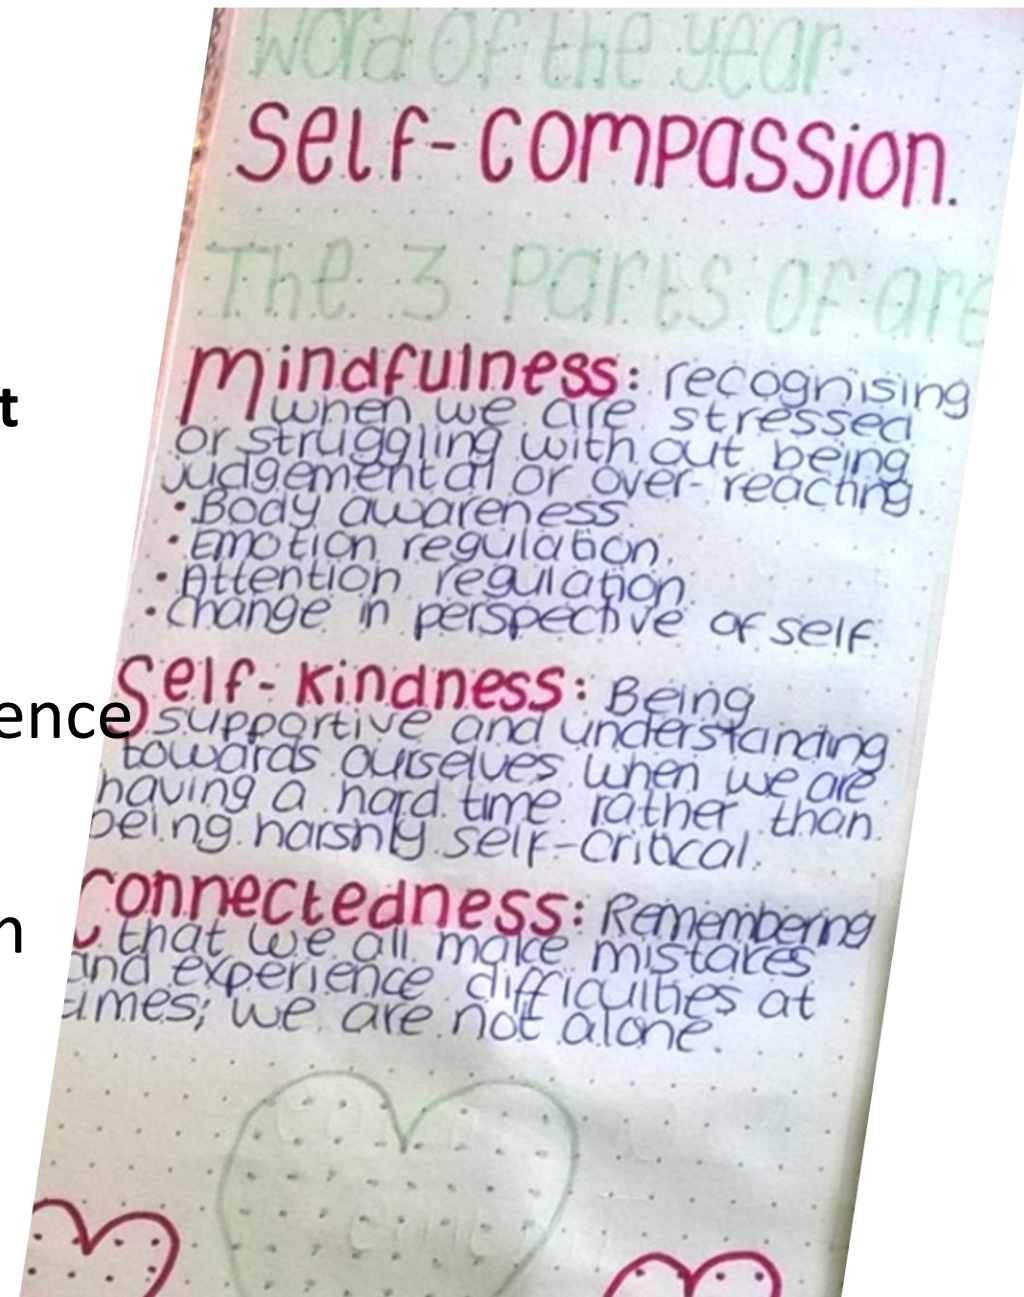 word of the year:
Self-Compassion.
The 3 Parts of are
Mindfulness: recognising
when we are stressed
or struggling with out being
judgemental or over-reacting.
• Body awareness.
• Emotion regulation.
• Attention regulation
• Change in perspective of self.
Self-Kindness: Being
supportive and understanding
towards ourselves when we are
having a hard time rather than
being harshly self-critical.
Connectedness: Remembering
that we all make mistakes
and experience difficulties at
times; we are not alone.
t
ence
n